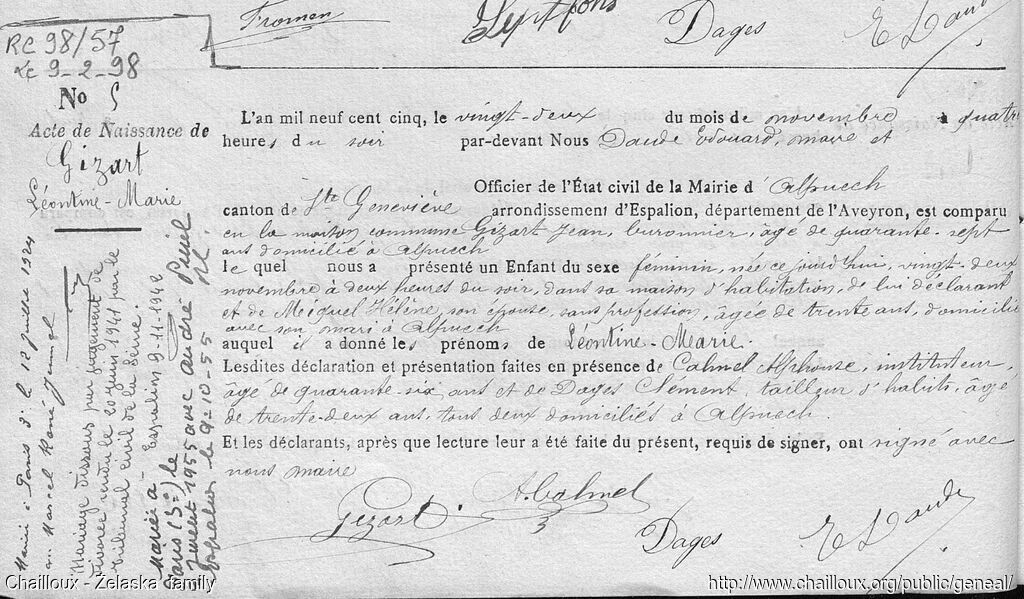 Fromen
Septfons
Dages
E Daude
RC 98/57
Le 9-2-98
No 5
Acte de Naissance de
Gizart
Léontine-Marie
L'an mil neuf cent cinq, le vingt-deux du mois de novembre à quatre
heures du soir par-devant Nous Daude Edouard, maire et
Officier de l'État civil de la Mairie d'Alpuech
canton de Ste Geneviève arrondissement d'Espalion, département de l'Aveyron, est comparu
en la maison commune Gizart Jean, buronnier, âgé de quarante-sept
ans domicilié à Alpuech
le quel nous a présenté un Enfant du sexe féminin, née ce jourd'hui, vingt-deux
novembre à deux heures du soir, dans sa maison d'habitation, de lui déclarant
et de Méiquel Hélène, son épouse, sans profession, âgée de trente ans, domiciliée
avec son mari à Alpuech
auquel il a donné les prénoms de Léontine-Marie.
Lesdites déclaration et présentation faites en présence de Calmel Alphonse, instituteur,
âgé de quarante-six ans et de Dages Clément, tailleur d'habits, âgé
de trente-deux ans, tous deux domiciliés à Alpuech.
Et les déclarants, après que lecture leur a été faite du présent, requis de signer, ont signé avec
nous maire
Gizart
A. Calmel
Dages
E Daude
Marié à Paris 3e le 12 juillet 1924
au Marcel René
Mariage dissous par jugement de
divorce rendu le 20 juin 1941 par le
tribunal civil de la Seine.
Espalion 9-11-1942
Mariée à
Paris (3e) le
1955 avec André Puiel
Espalion le 9-10-55
Chailloux - Zelaska family
http://www.chailloux.org/public/geneal/